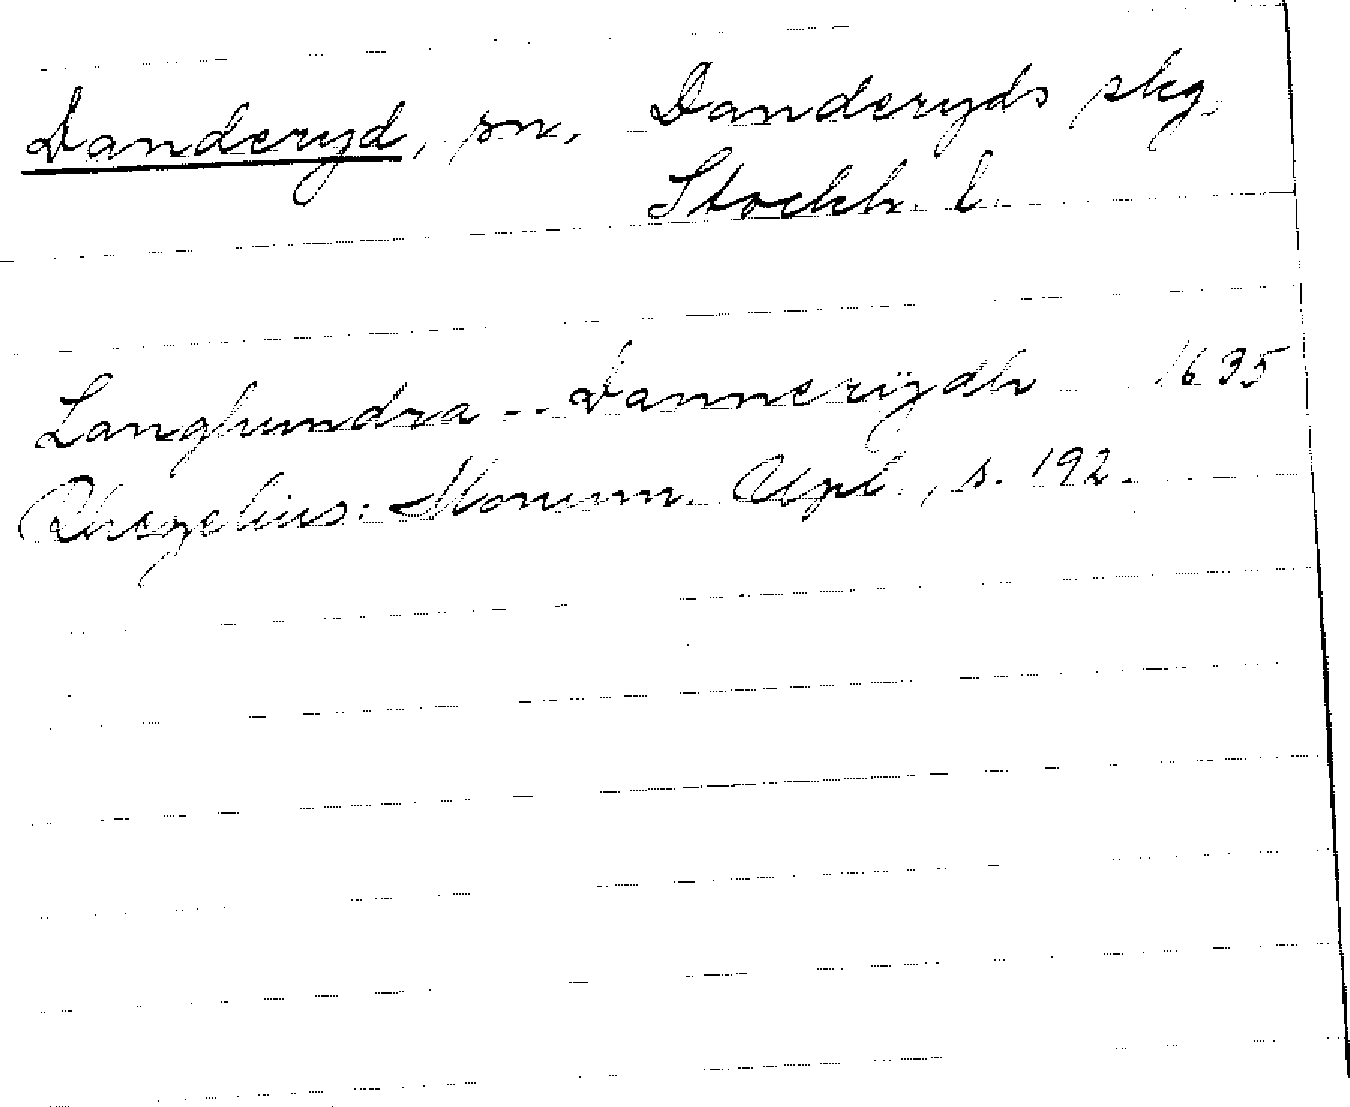 Danderyd, sn. Danderyds skg.
Stockh. l.
Langhundra -- Dannerÿdh 1635
Rhezelius: Monum. Upl., s. 192.